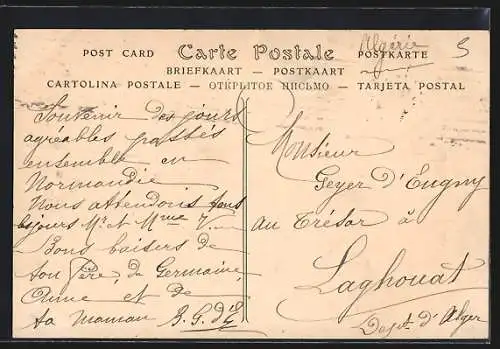 Algérie
5
POST CARD Carte Postale POSTKARTE
BRIEFKAART — POSTKAART
CARTOLINA POSTALE — ОТКРЫТОЕ ПИСЬМО — TARJETA POSTAL
Souvenir des jours
agréables passés
ensemble en
Normandie
Nous attendons tous
les jours Mr. et Mme V...
Bons baisers de
ton Père, de Germaine,
Anne et de
ta maman B. G. d'E
Monsieur
Geyer d'Eugny
au Trésor à
Laghouat
Dept. d'Alger